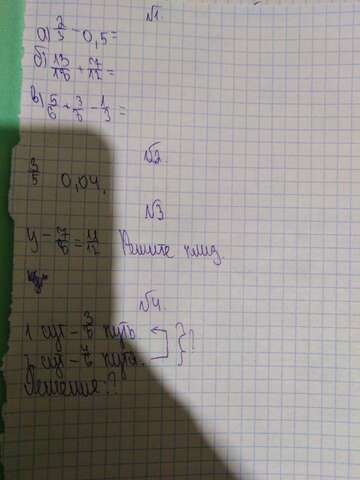 №1.
а) 2/5 - 0,5 =
б) 13/18 + 7/12 =
в) 5/6 + 3/8 - 1/3 =
№2.
3/5 0,04.
№3
у - 7/8 = 11/12 Решите
№4.
1 сут - 3/8 путь
2 сут - 7/6 пути } ?
Решение: ?